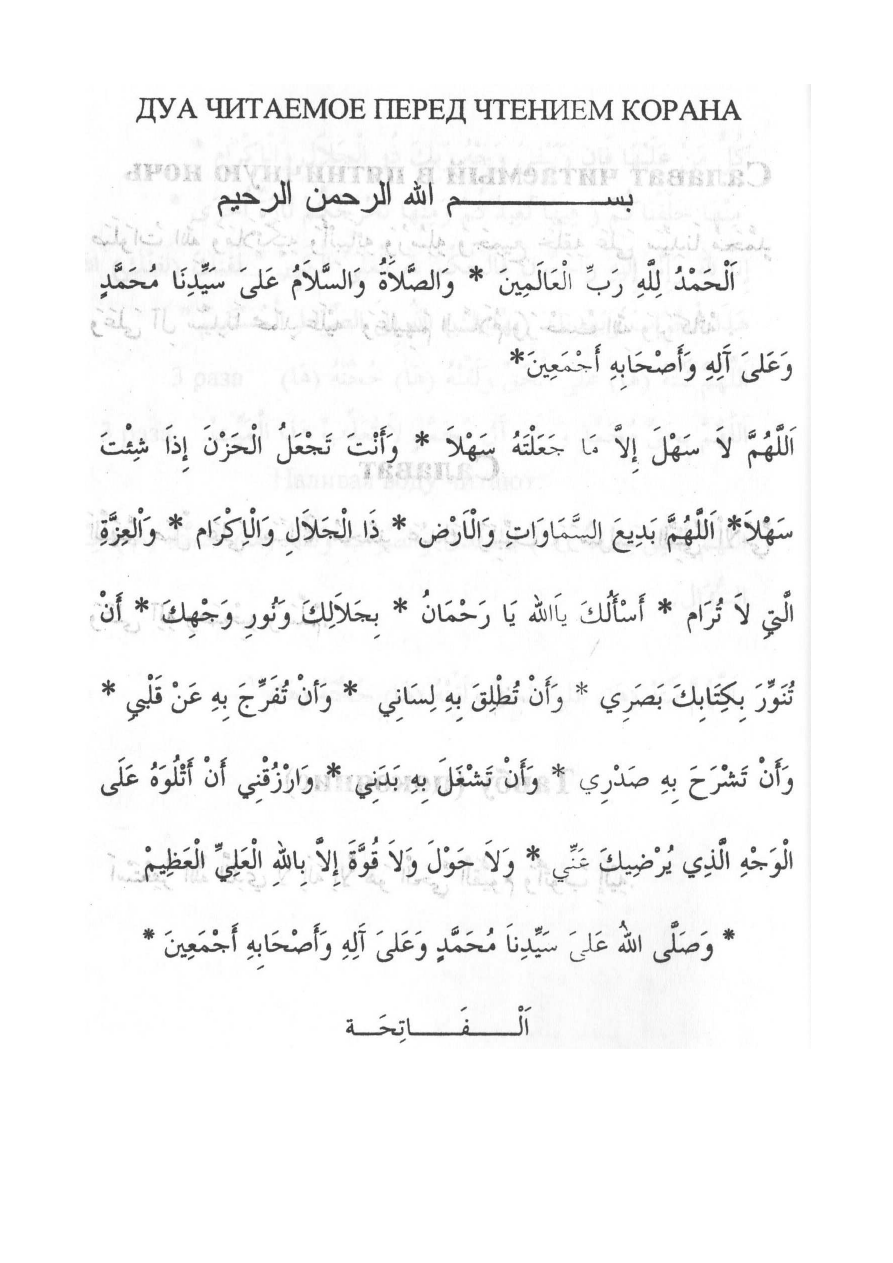 ДУА ЧИТАЕМОЕ ПЕРЕД ЧТЕНИЕМ КОРАНА
بســـــــــم الله الرحمن الرحيم
اَلْحَمْدُ لِلَّهِ رَبِّ الْعَالَمِينَ * وَالصَّلاَةُ وَالسَّلاَمُ عَلىَ سَيِّدِنَا مُحَمَّدٍ
وَعَلىَ آلِهِ وَأَصْحَابِهِ أَجْمَعِينَ*
اَللَّهُمَّ لاَ سَهْلَ إِلاَّ مَا جَعَلْتَهُ سَهْلاَ * وَأَنْتَ تَجْعَلُ الْحَزْنَ إِذاَ شِئْتَ
سَهْلاَ* اَللَّهُمَّ بَدِيعَ السَّمَاوَاتِ وَالْاَرْضِ * ذَا الْجَلَالِ وَالْاِكْرَام * وَالْعِزَّةِ
الَّتِي لاَ تُرَام * أَسْأَلُكَ ياَالله يَا رَحْمَانُ * بِجَلَالِكَ وَنُورِ وَجْهِكَ * أَنْ
تُنَوِّرَ بِكِتَابِكَ بَصَرِي * وَأَنْ تُطْلِقَ بِهِ لِسَانِي * وَأَنْ تُفَرِّجَ بِهِ عَنْ قَلْبِي *
وَأَنْ تَشْرَحَ بِهِ صَدْرِي * وَأَنْ تَشْغَلَ بِهِ بَدَنِي * وَارْزُقْنِي أَنْ أَتْلُوَهُ عَلَى
الْوَجْهِ الَّذِي يُرْضِيكَ عَنِّي * وَلاَ حَوْلَ وَلاَ قُوَّةَ إِلاَّ بِاللهِ الْعَلِيِّ الْعَظِيمْ
* وَصَلَّى اللهُ عَلىَ سَيِّدِناَ مُحَمَّدٍ وَعَلىَ آلِهِ وَأَصْحَابِهِ أَجْمَعِينَ *
اَلْـــفَـــــاتِحَـــة